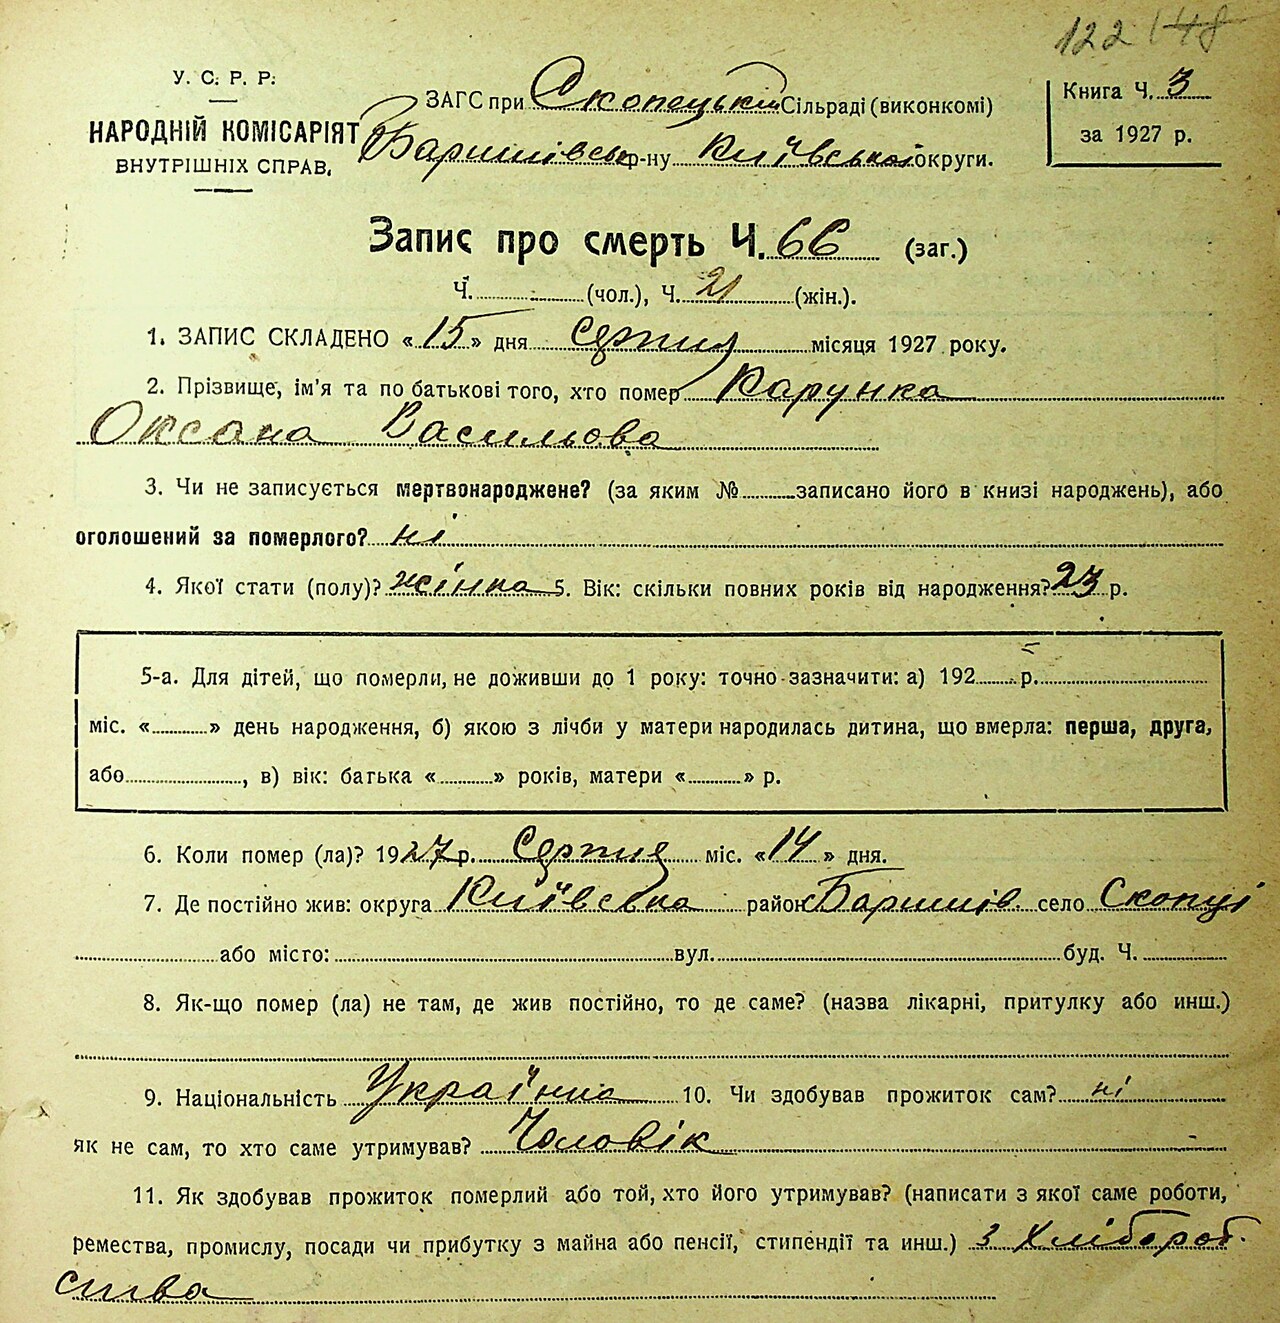 122 148
У. С. Р. Р.
НАРОДНІЙ КОМІСАРІЯТ
ВНУТРІШНІХ СПРАВ.
ЗАГС при Скопецькій Сільраді (виконкомі)
Баришівськ р-ну Київської округи.
Книга Ч. 3
за 1927 р.
Запис про смерть Ч. 66 (заг.)
Ч. (чол.), Ч. 21 (жін.).
1. ЗАПИС СКЛАДЕНО « 15 » дня Серпня місяця 1927 року.
2. Прізвище, ім'я та по батькові того, хто помер Карунка
Оксана Васильова
3. Чи не записується мертвонароджене? (за яким № записано його в книзі народжень), або
оголошений за померлого? ні
4. Якої стати (полу)? жінка 5. Вік: скільки повних років від народження? 23 р.
5-а. Для дітей, що померли, не доживши до 1 року: точно зазначити: а) 192 р.
міс. « » день народження, б) якою з лічби у матери народилась дитина, що вмерла: перша, друга,
або , в) вік: батька « » років, матери « » р.
6. Коли помер (ла)? 1927 р. Серпня міс. « 14 » дня.
7. Де постійно жив: округа Київська район Баришів. село Скопці
або місто: вул. буд. Ч.
8. Як-що помер (ла) не там, де жив постійно, то де саме? (назва лікарні, притулку або инш.)
9. Національність Українка 10. Чи здобував прожиток сам? ні
як не сам, то хто саме утримував? Чоловік
11. Як здобував прожиток померлий або той, хто його утримував? (написати з якої саме роботи,
ремества, промислу, посади чи прибутку з майна або пенсії, стипендії та инш.) з Хлібороб-
ства